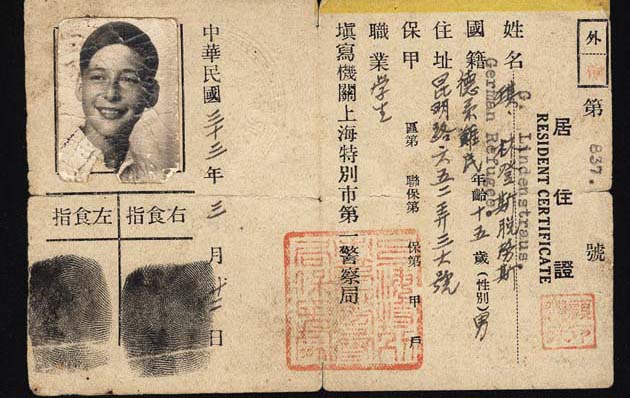 外
第 837. 號
居住證
RESIDENT CERTIFICATE
姓名 琪. 林登斯脫勞斯
G. Lindenstraus.
國籍 德系難民 年齡十五歲(性別)男
German Refugee.
住址 昆明路六五二弄三六號
保甲 區第 聯保第 保第 甲 戶
職業 學生
填寫機關上海特別市第一警察局
中華民國三十三年三月廿二日
右食指
左食指